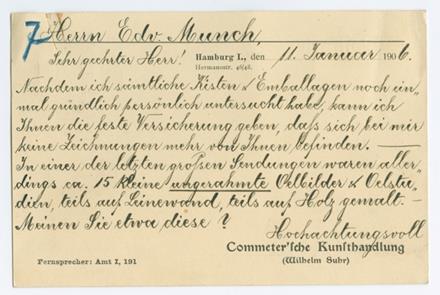 7 Herrn Edv. Munch,
Sehr geehrter Herr! Hamburg I., den 11. Januar 1906.
Hermannstr. 46/48.
Nachdem ich sämtliche Kisten & Emballagen noch ein-
mal gründlich persönlich untersucht habe, kann ich
Ihnen die feste Versicherung geben, daß sich bei mir
keine Zeichnungen mehr von Ihnen befinden. —
In einer der letzten großen Sendungen waren aller-
dings ca. 15 kleine ungerahmte Oelbilder & Oelstu-
dien, teils auf Leinewand, teils auf Holz gemalt. —
Meinen Sie etwa diese?
Hochachtungsvoll
Commeter'sche Kunsthandlung
(Wilhelm Suhr)
Fernsprecher: Amt I, 191